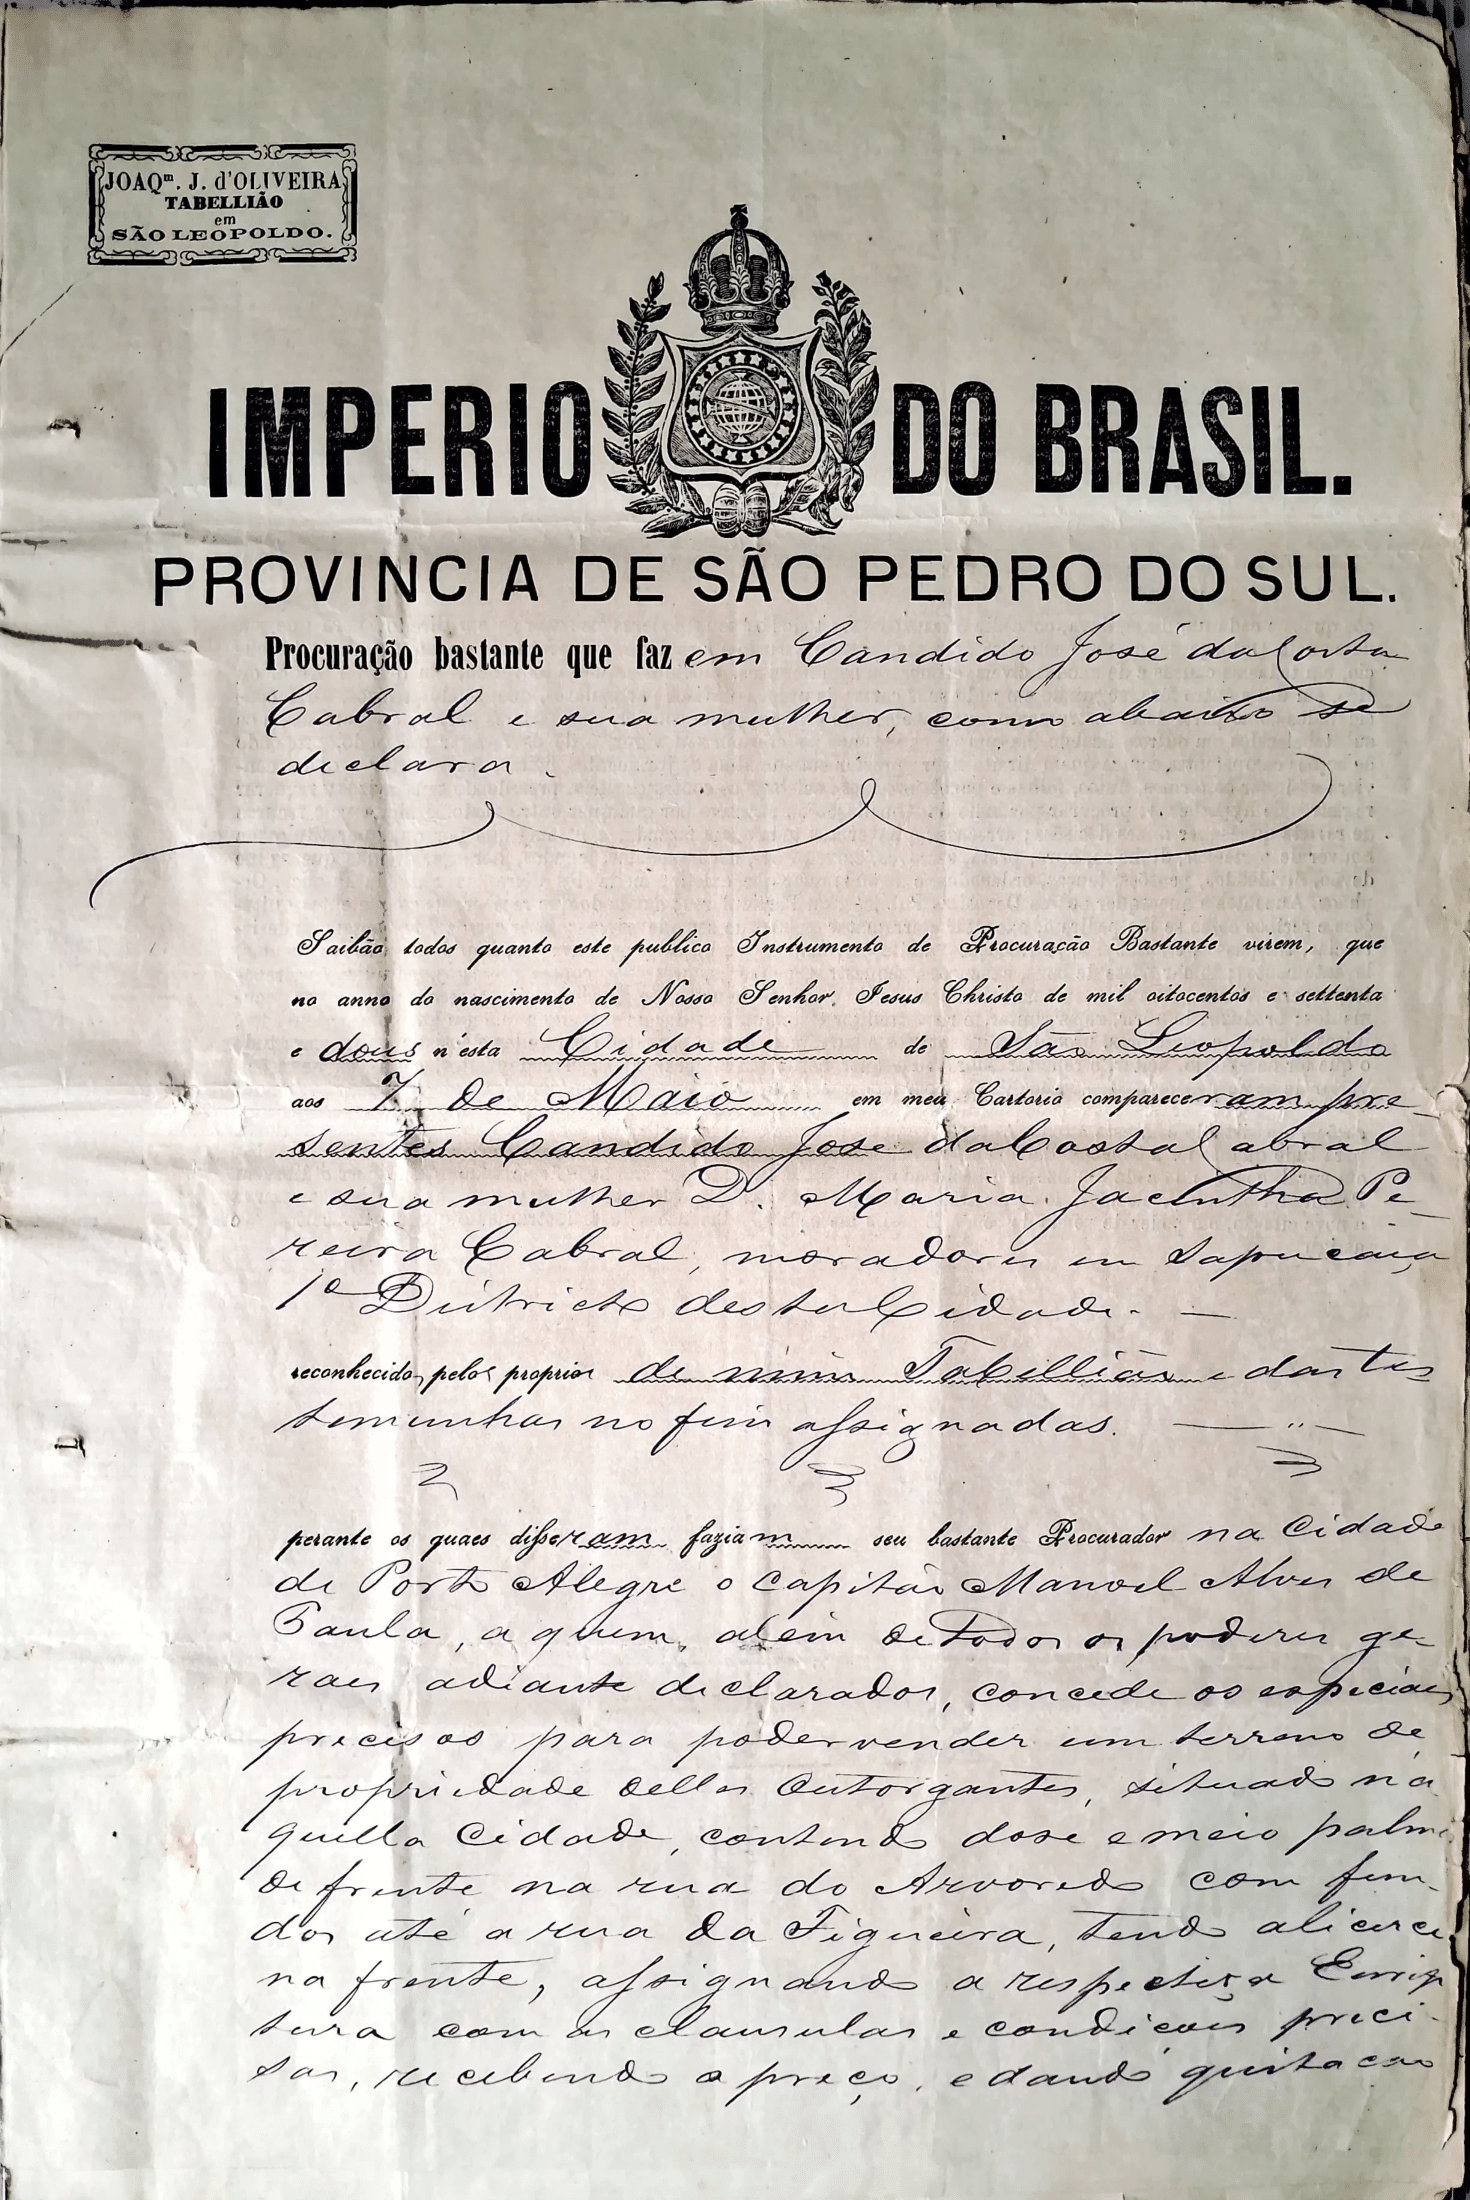 JOAQm. J. d'OLIVEIRA
TABELLIÃO
em
SÃO LEOPOLDO.
IMPERIO DO BRASIL.
PROVINCIA DE SÃO PEDRO DO SUL.
Procuração bastante que faz em Candido José da Costa
Cabral e sua mulher, como abaixo se
declara.
Saibão todos quanto este publico Instrumento de Procuração Bastante virem, que
no anno do nascimento de Nosso Senhor Jesus Christo de mil oitocentos e settenta
e dous n'esta Cidade de São Leopoldo
aos 7 de Maio em meu Cartorio compareceram pre-
sentes Candido José da Costa Cabral
e sua mulher D. Maria Jacintha Pe-
reira Cabral, moradores em Sapucaia
1º Districto desta Cidade. —
reconhecidos pelos proprios de mim Tabellião e das tes
temunhas no fim assignadas. — " —
perante os quaes disseram faziam seu bastante Procurador na Cidade
de Porto Alegre o Capitão Manoel Alves de
Paula, a quem, alem de todos os poderes ge-
raes adiante declarados, concede os especiaes
precisos para poder vender um terreno de
propriedade delles Outorgantes, situado na
quella Cidade, contendo dose e meio palmos
de frente na rua do Arvoredo com fun-
dos até a rua da Figueira, tendo alicerce
na frente, assignando a respectiva Escrip
tura com as clausulas e condicões preci-
sas, recebendo o preço, e dando quitacao